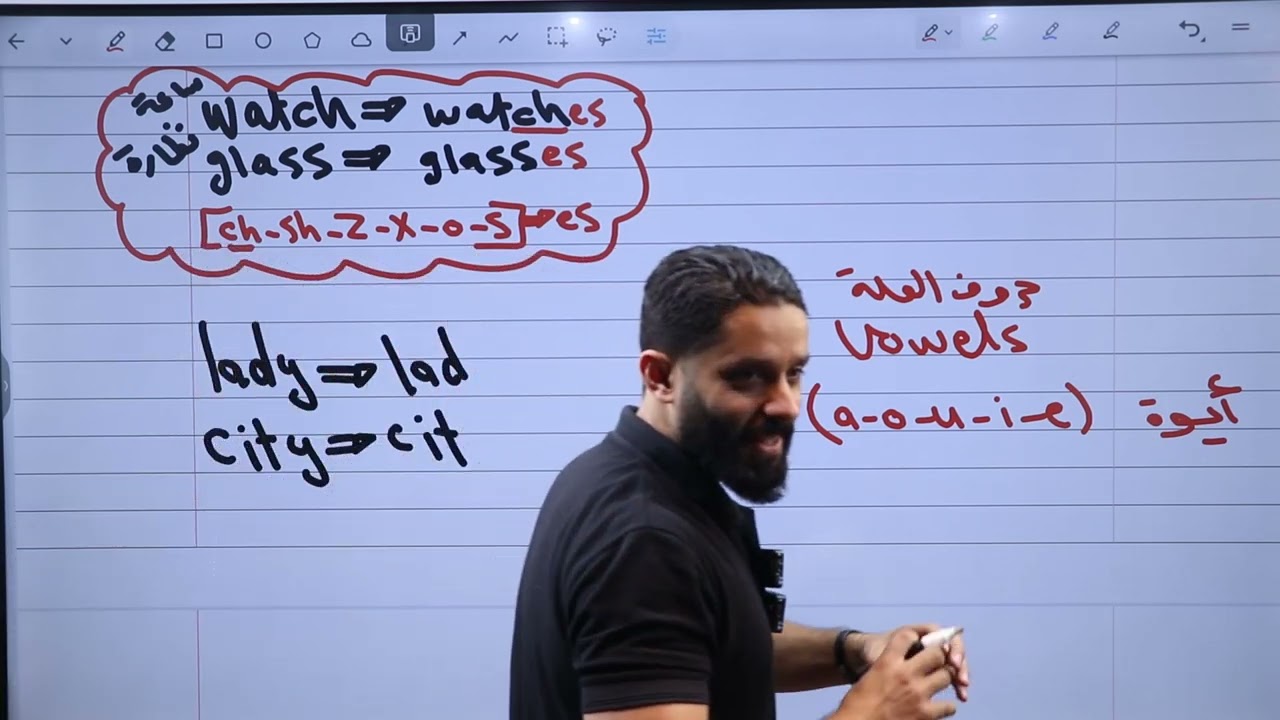 ساعة watch ⇒ watches
نظارة glass ⇒ glasses
[ch-sh-z-x-o-s]→es
lady ⇒ lad
city ⇒ cit
حروف العلة
Vowels
(a-o-u-i-e) أيوة